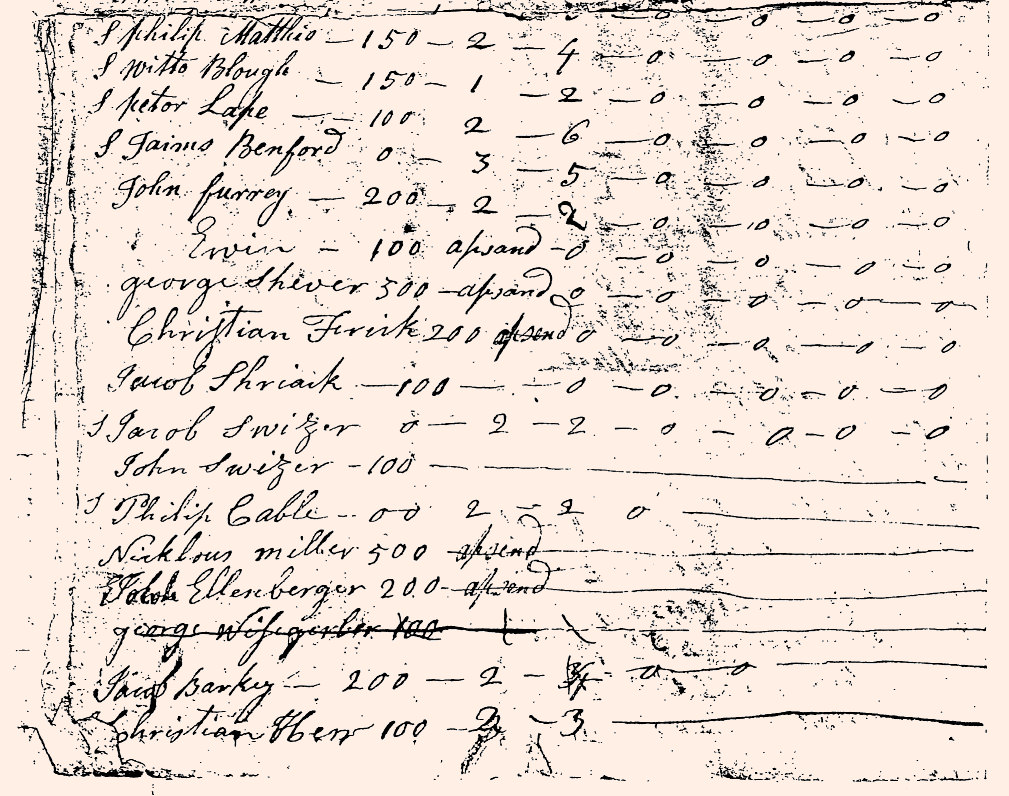 S philip Matthis — 150 — 2 — 4 — 0 — 0 — 0 — 0
S witto Blough — 150 — 1 — 2 — 0 — 0 — 0 — 0
S petor Lape — — 100 2 — 6 — 0 — 0 — 0 — 0
S Jaims Benford 0 — 3 5 — 0 — 0 — 0 — 0
John furrey — 200 — 2 — 2 — 0 — 0 — 0 — 0
Erwin — 100 apsand — 0 — 0 — 0 — 0 — 0
george Shever 500 — apsand 0 — 0 — 0 — 0 — 0
Christian 200 apsend 0 — 0 — 0 — 0 — 0
Jacob Shriack — 100 — — 0 — 0 — 0 — 0 — 0
S Jacob Swizer 0 — 2 — 2 — 0 — 0 — 0 — 0
John Swizer — 100 —
S Philip Cable — 00 2 — 2 0 —
Nicklous miller 500 apsend
Ellenberger 200 — apsend
george Wisegerber 100
Jacob Barkey — 200 — 2 — 0 — 0
Christian Herr 100 — 3 —